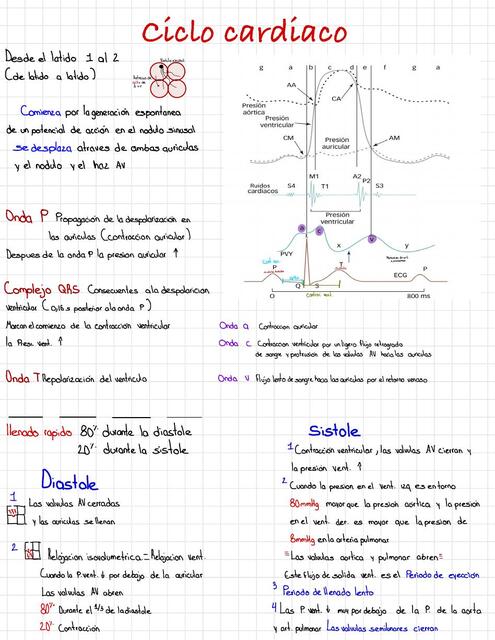 Ciclo cardíaco
Desde el latido 1 al 2
(de latido a latido)
Comienza por la generación espontanea
de un potencial de acción en el nodulo sinusal
se desplaza atraves de ambas auriculas
y el nodulo y el haz AV
Onda P Propagación de la despolarización en
las auriculas (contracción auricular)
Despues de la onda P la presion auricular ↑
Complejo QRS Consecuentes a la despolarizacion
ventricular (0,16s posterior a la onda P)
Marcan el comienzo de la contracción ventricular
la Pres. vent. ↑
Onda T Repolarización del ventriculo
g a b c d e f g a
AA
CA
Presión
aórtica
Presión
ventricular
Presión
auricular
CM
AM
Ruidos
cardíacos
S4
M1
T1
A2
P2
S3
Presión
ventricular
PVY
a
c
x
v
y
P
Q
S
T
ECG
P
0
800 ms
Onda a Contraccion auricular
Onda c Contraccion ventricular por un ligero flujo retrogrado
de sangre y protrusion de las valvulas AV hacia las auriculas
Onda v Flujo lento de sangre hacia las auriculas por el retorno venoso
llenado rapido 80% durante la diastole
20% durante la sistole
Diastole
1 Las valvulas AV cerradas
y las auriculas se llenan
2 Relajacion isovolumetrica = Relajacion vent.
Cuando la P.vent ↓ por debajo de la auricular
Las valvulas AV abren
80% Durante el 1/3 de la diastole
20% Contracción
Sistole
1 Contracción ventricular, las valvulas AV cierran y
la presion vent. ↑
2 Cuando la presion en el vent. izq es en torno
80mmHg mayor que la presion aortica y la presion
en el vent. der. es mayor que la presion de
8mmHg en la arteria pulmonar
=Las valvulas aortica y pulmonar abren=
Este flujo de salida vent. es el Periodo de eyección
3 Periodo de llenado lento
4 Las P. vent ↓ muy por debajo de la P. de la aorta
y art. pulmonar Las valvulas semilunares cierran